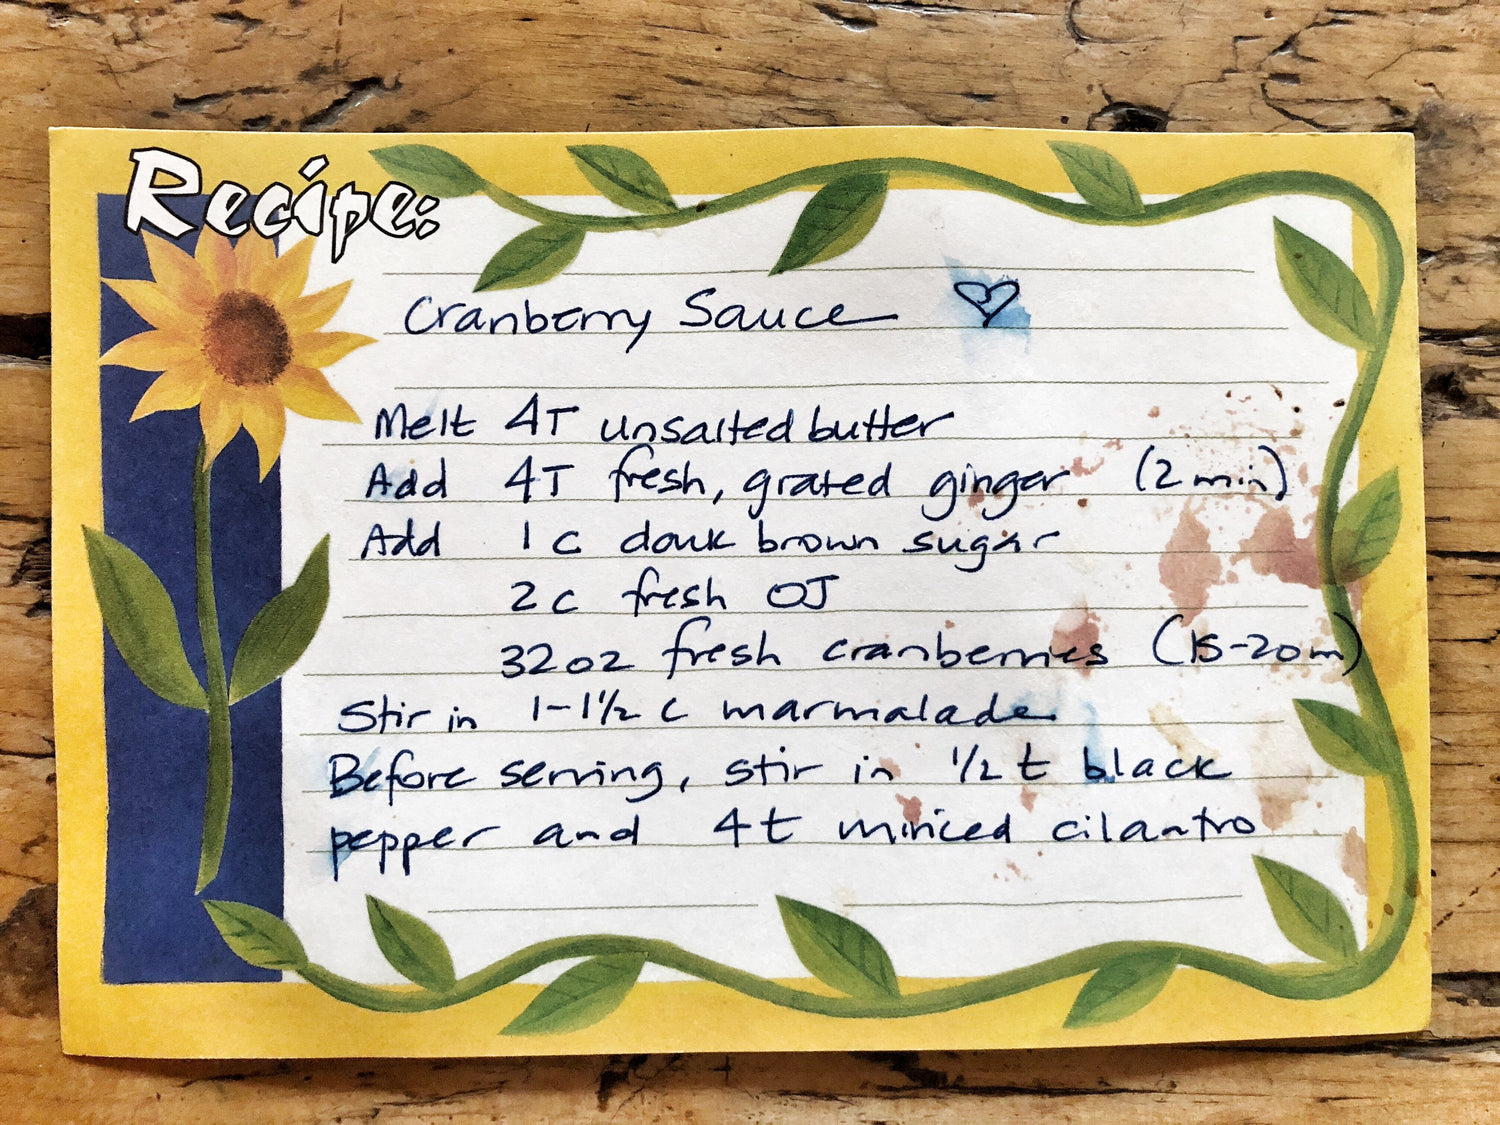 Recipe:
Cranberry Sauce
Melt 4T unsalted butter
Add 4T fresh, grated ginger (2 min)
Add 1 c dark brown sugar
2 c fresh OJ
32 oz fresh cranberries (15-20 m)
Stir in 1-1½ c marmalade
Before serving, stir in ½ t black
pepper and 4 t minced cilantro